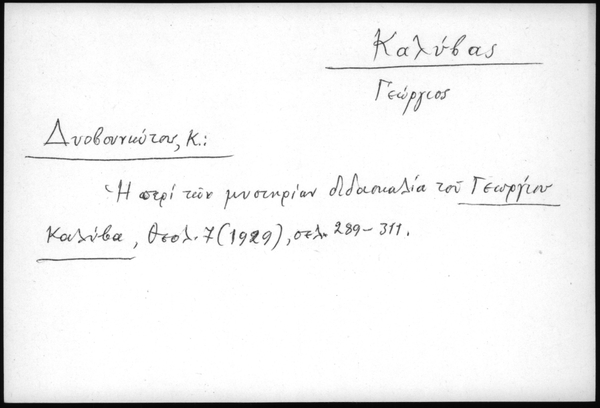 Καλύβας
Γεώργιος
Δυοβουνιώτου, Κ.:
Ἡ περί τῶν μυστηρίων διδασκαλία τοῦ Γεωργίου
Καλύβα, Θεολ. 7 (1929), σελ. 289-311.